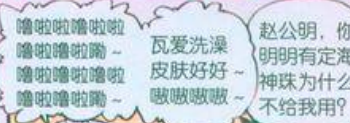 噜啦啦噜啦啦
噜啦啦噜啦嘞～
噜啦噜啦噜啦噜
噜啦噜啦嘞～
瓦爱洗澡
皮肤好好～
嗷嗷嗷嗷～
赵公明，你
明明有定海
神珠为什么
不给我用？